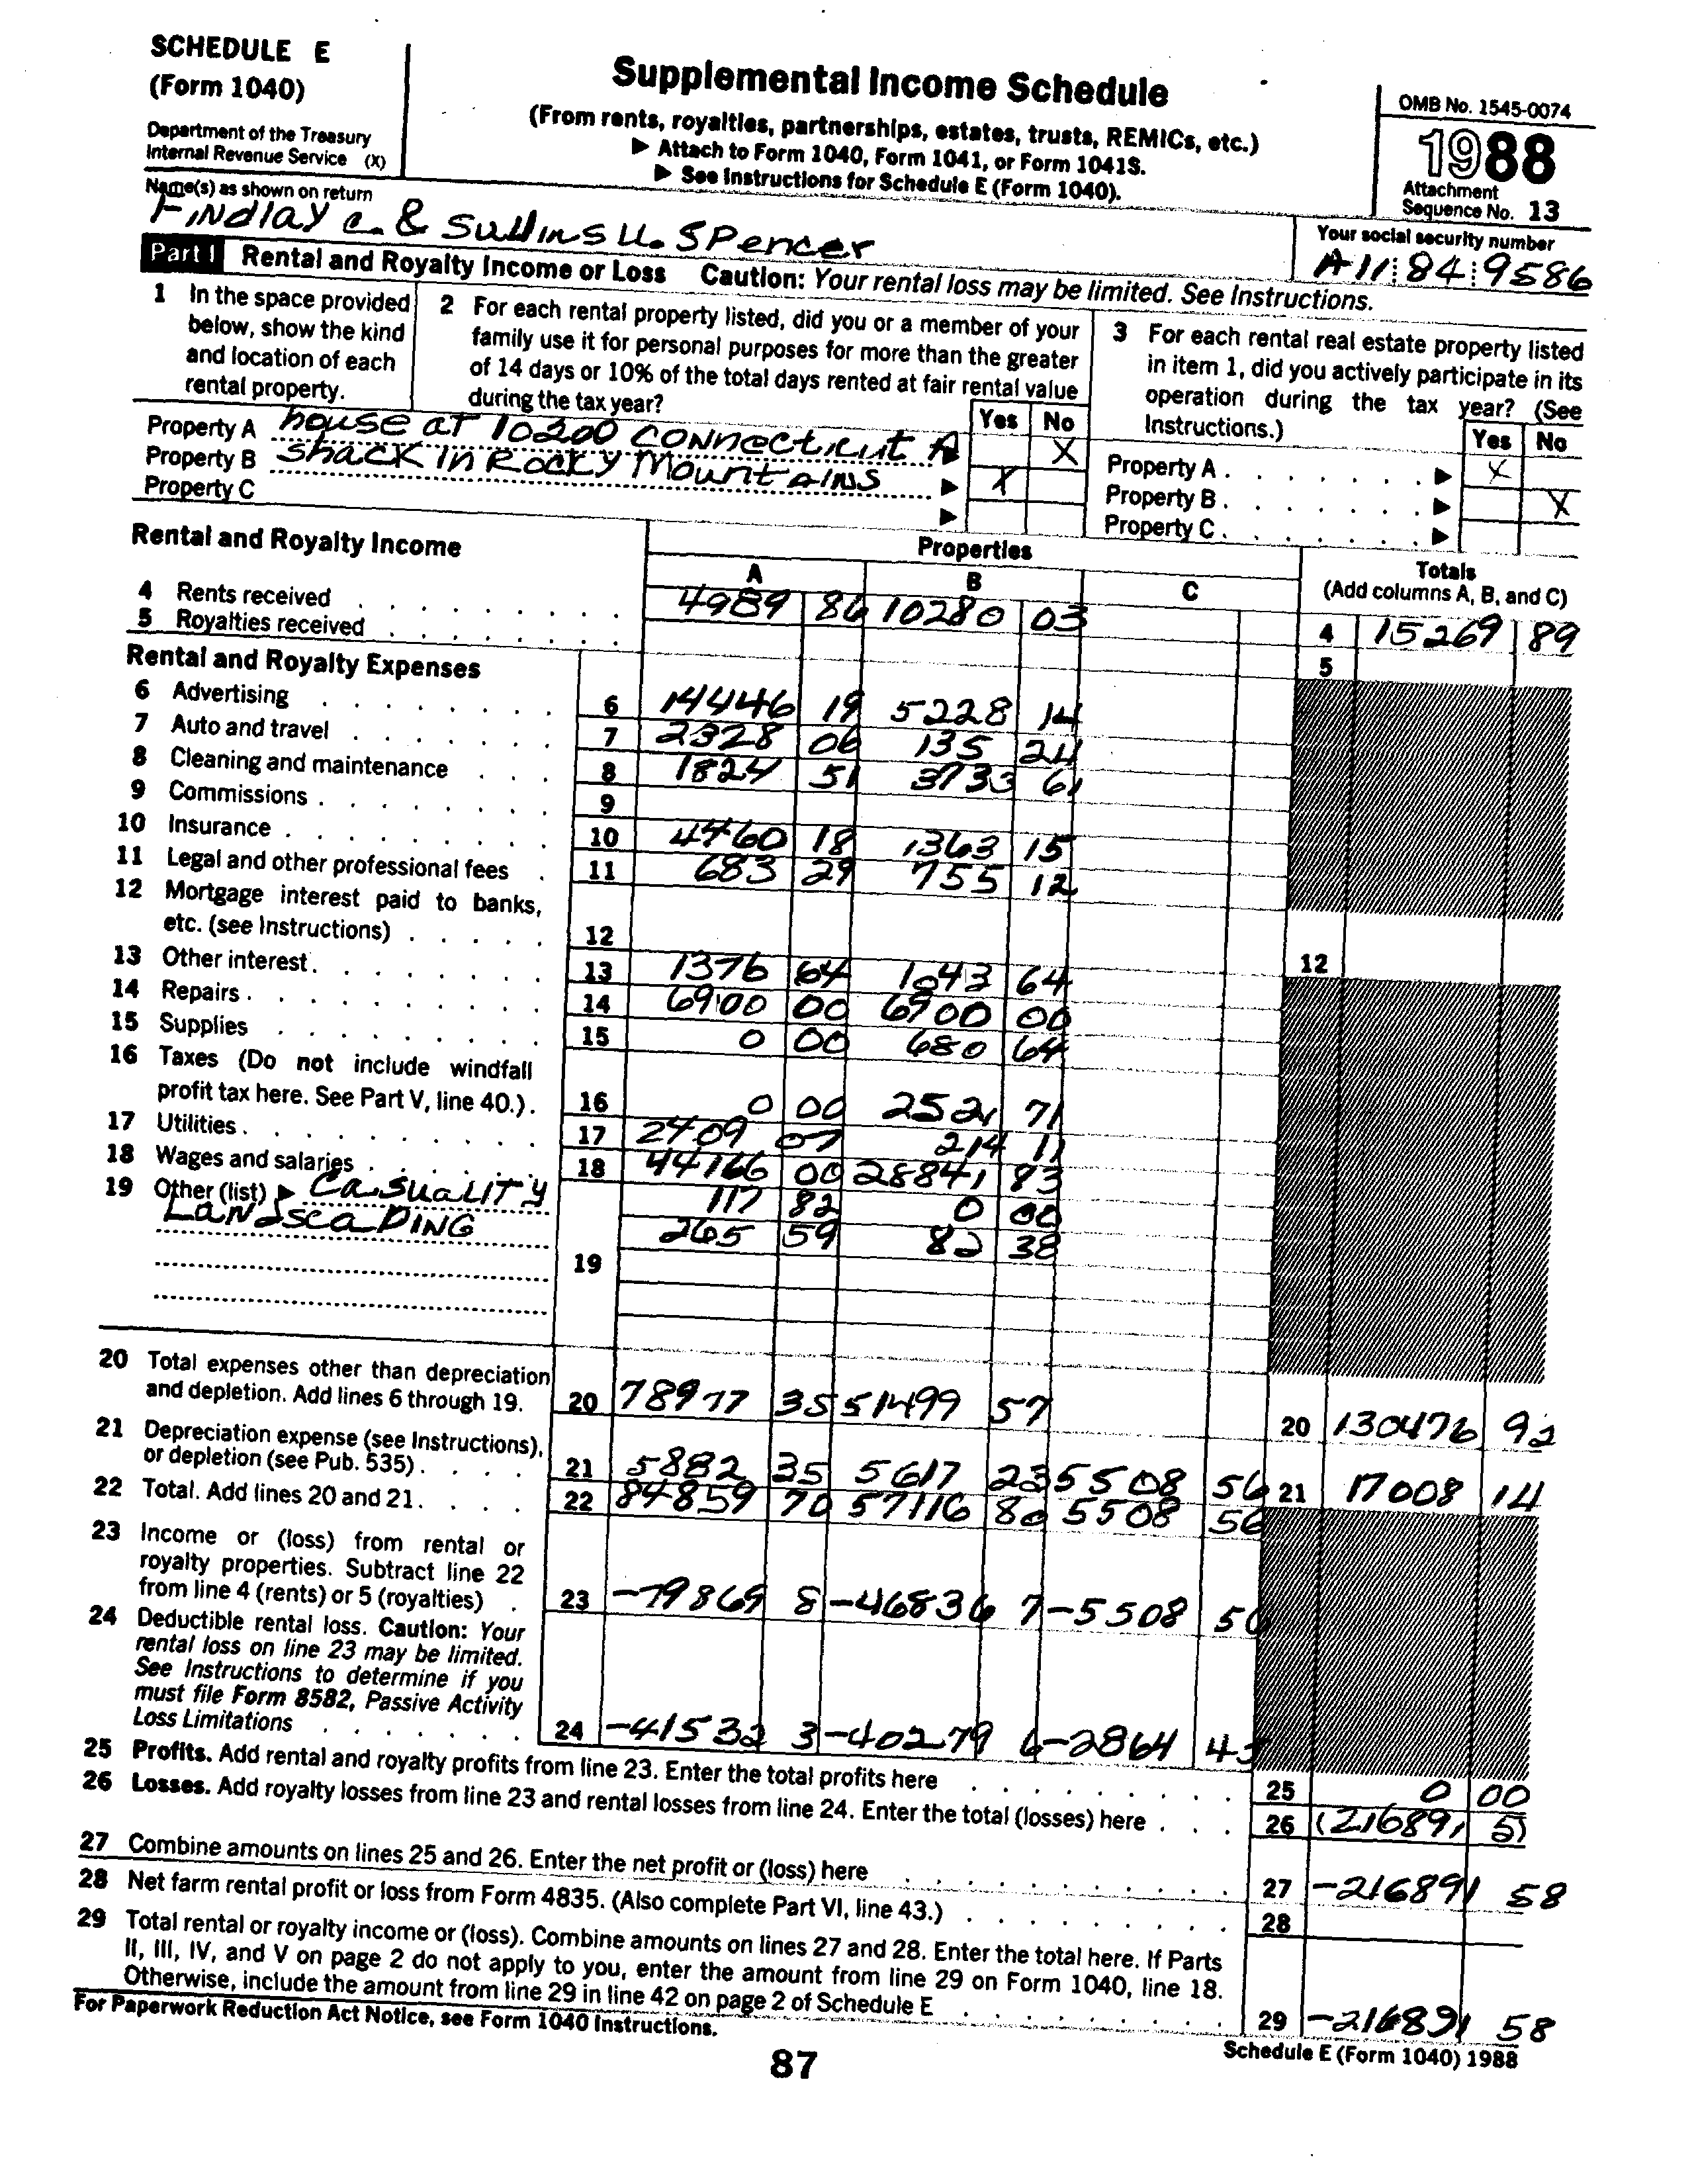 SCHEDULE E
(Form 1040)
Department of the Treasury
Internal Revenue Service (X)
Supplemental Income Schedule
(From rents, royalties, partnerships, estates, trusts, REMICs, etc.)
▶ Attach to Form 1040, Form 1041, or Form 1041S.
▶ See Instructions for Schedule E (Form 1040).
OMB No. 1545-0074
1988
Attachment
Sequence No. 13
Name(s) as shown on return
Findlay C. & Sullins U. Spencer
Your social security number
A11 84 9586
Part I Rental and Royalty Income or Loss Caution: Your rental loss may be limited. See Instructions.
1 In the space provided
below, show the kind
and location of each
rental property.
2 For each rental property listed, did you or a member of your
family use it for personal purposes for more than the greater
of 14 days or 10% of the total days rented at fair rental value
during the tax year?
Yes No
3 For each rental real estate property listed
in item 1, did you actively participate in its
operation during the tax year? (See
Instructions.)
Yes No
Property A house at 10200 Connecticut A ▶ X
Property B shack in Rocky Mountains ▶ X
Property C ▶
Property A . . . . . . . ▶ X
Property B . . . . . . . ▶ X
Property C . . . . . . . ▶
Rental and Royalty Income
Properties
A B C
Totals
(Add columns A, B, and C)
4 Rents received 4989 86 10280 03 4 15269 89
5 Royalties received 5
Rental and Royalty Expenses
6 Advertising 6 14446 19 5228 14
7 Auto and travel 7 2328 06 135 24
8 Cleaning and maintenance 8 1824 51 3733 61
9 Commissions 9
10 Insurance 10 4460 18 1363 15
11 Legal and other professional fees 11 683 29 755 12
12 Mortgage interest paid to banks,
etc. (see Instructions) 12 12
13 Other interest 13 1376 64 1043 64
14 Repairs 14 6900 00 6900 00
15 Supplies 15 0 00 680 64
16 Taxes (Do not include windfall
profit tax here. See Part V, line 40.) 16 0 00 2521 71
17 Utilities 17 2409 07 214 11
18 Wages and salaries 18 44166 00 28841 83
19 Other (list) ▶ Casuality 117 82 0 00
Landscaping 265 59 82 38
19
20 Total expenses other than depreciation
and depletion. Add lines 6 through 19. 20 78977 35 51499 57 20 130476 92
21 Depreciation expense (see Instructions),
or depletion (see Pub. 535) 21 5882 35 5617 23 5508 56 21 17008 14
22 Total. Add lines 20 and 21 22 84859 70 57116 80 5508 56
23 Income or (loss) from rental or
royalty properties. Subtract line 22
from line 4 (rents) or 5 (royalties) 23 -79869 8 -46836 7 -5508 56
24 Deductible rental loss. Caution: Your
rental loss on line 23 may be limited.
See Instructions to determine if you
must file Form 8582, Passive Activity
Loss Limitations 24 -41532 3 -40279 6 -2864 45
25 Profits. Add rental and royalty profits from line 23. Enter the total profits here 25 0 00
26 Losses. Add royalty losses from line 23 and rental losses from line 24. Enter the total (losses) here 26 (216891 5)
27 Combine amounts on lines 25 and 26. Enter the net profit or (loss) here 27 -216891 58
28 Net farm rental profit or loss from Form 4835. (Also complete Part VI, line 43.) 28
29 Total rental or royalty income or (loss). Combine amounts on lines 27 and 28. Enter the total here. If Parts
II, III, IV, and V on page 2 do not apply to you, enter the amount from line 29 on Form 1040, line 18.
Otherwise, include the amount from line 29 in line 42 on page 2 of Schedule E 29 -216891 58
For Paperwork Reduction Act Notice, see Form 1040 Instructions.
Schedule E (Form 1040) 1988
87